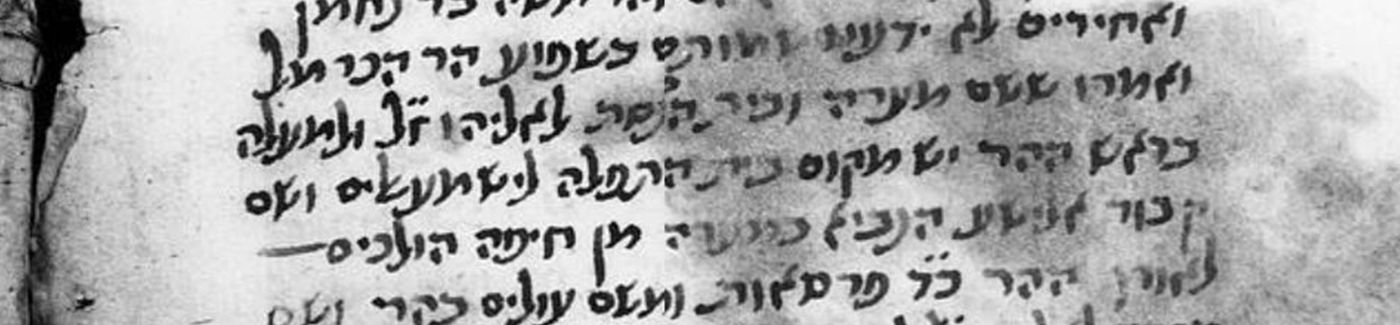 נחמן
ואחירים לא ידענו שמותם כשפוע הר הכרמל
ואמרו ששם מערה ובית הכנסת לאליהו ז״ל ולמעלה
בראש ההר יש מקום בית התפלה לישמעאלים ושם
קבור אלישע הנביא במערה מן חיפה הולכים
לאורך ההר כ״ד פרסאות ומשם עולים בהר ושם